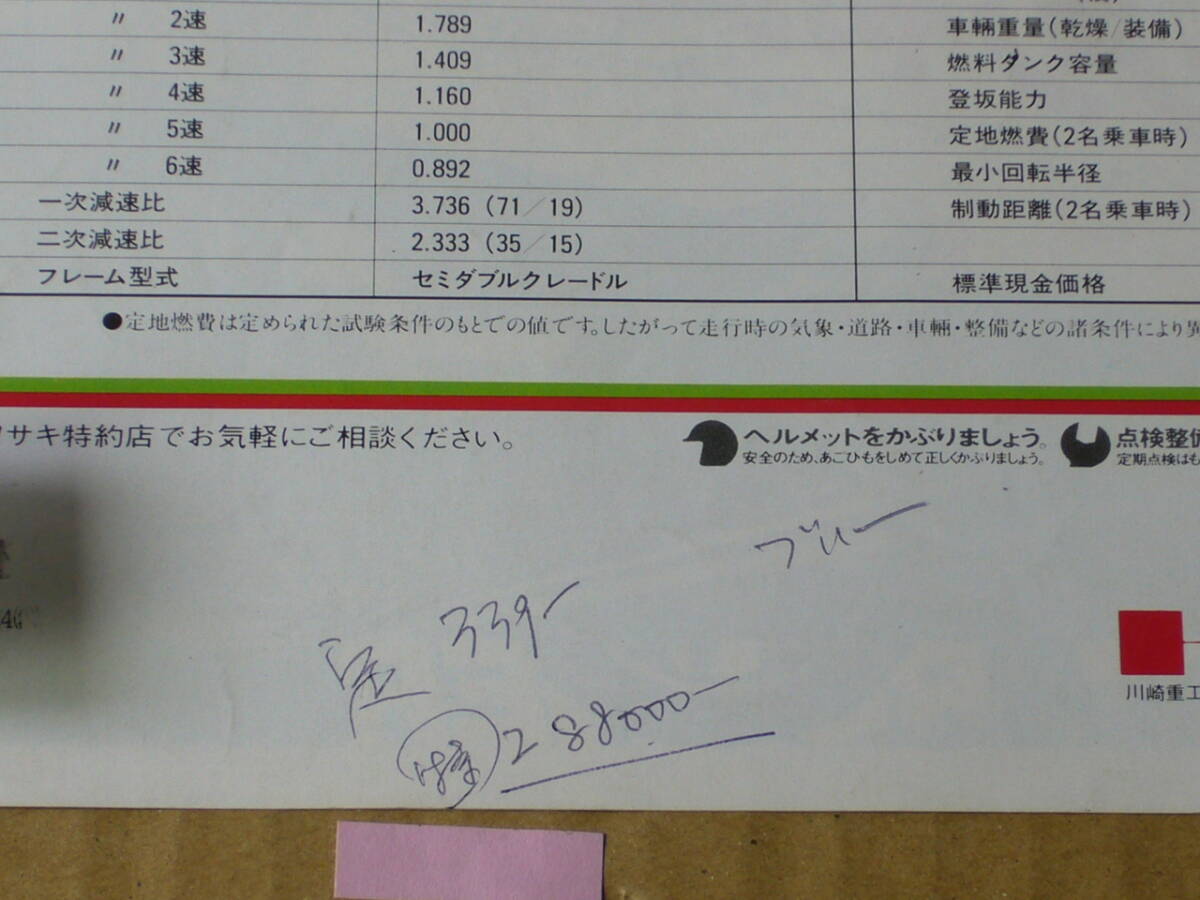 〃 2速 1.789 車輛重量(乾燥/装備)
〃 3速 1.409 燃料タンク容量
〃 4速 1.160 登坂能力
〃 5速 1.000 定地燃費(2名乗車時)
〃 6速 0.892 最小回転半径
一次減速比 3.736 (71/19) 制動距離(2名乗車時)
二次減速比 2.333 (35/15)
フレーム型式 セミダブルクレードル 標準現金価格
●定地燃費は定められた試験条件のもとでの値です。したがって走行時の気象・道路・車輛・整備などの諸条件により異
サキ特約店でお気軽にご相談ください。
ヘルメットをかぶりましょう。
安全のため、あごひもをしめて正しくかぶりましょう。
点検整備
定期点検はも
ブルー
定 339-
特 288000-
川崎重工